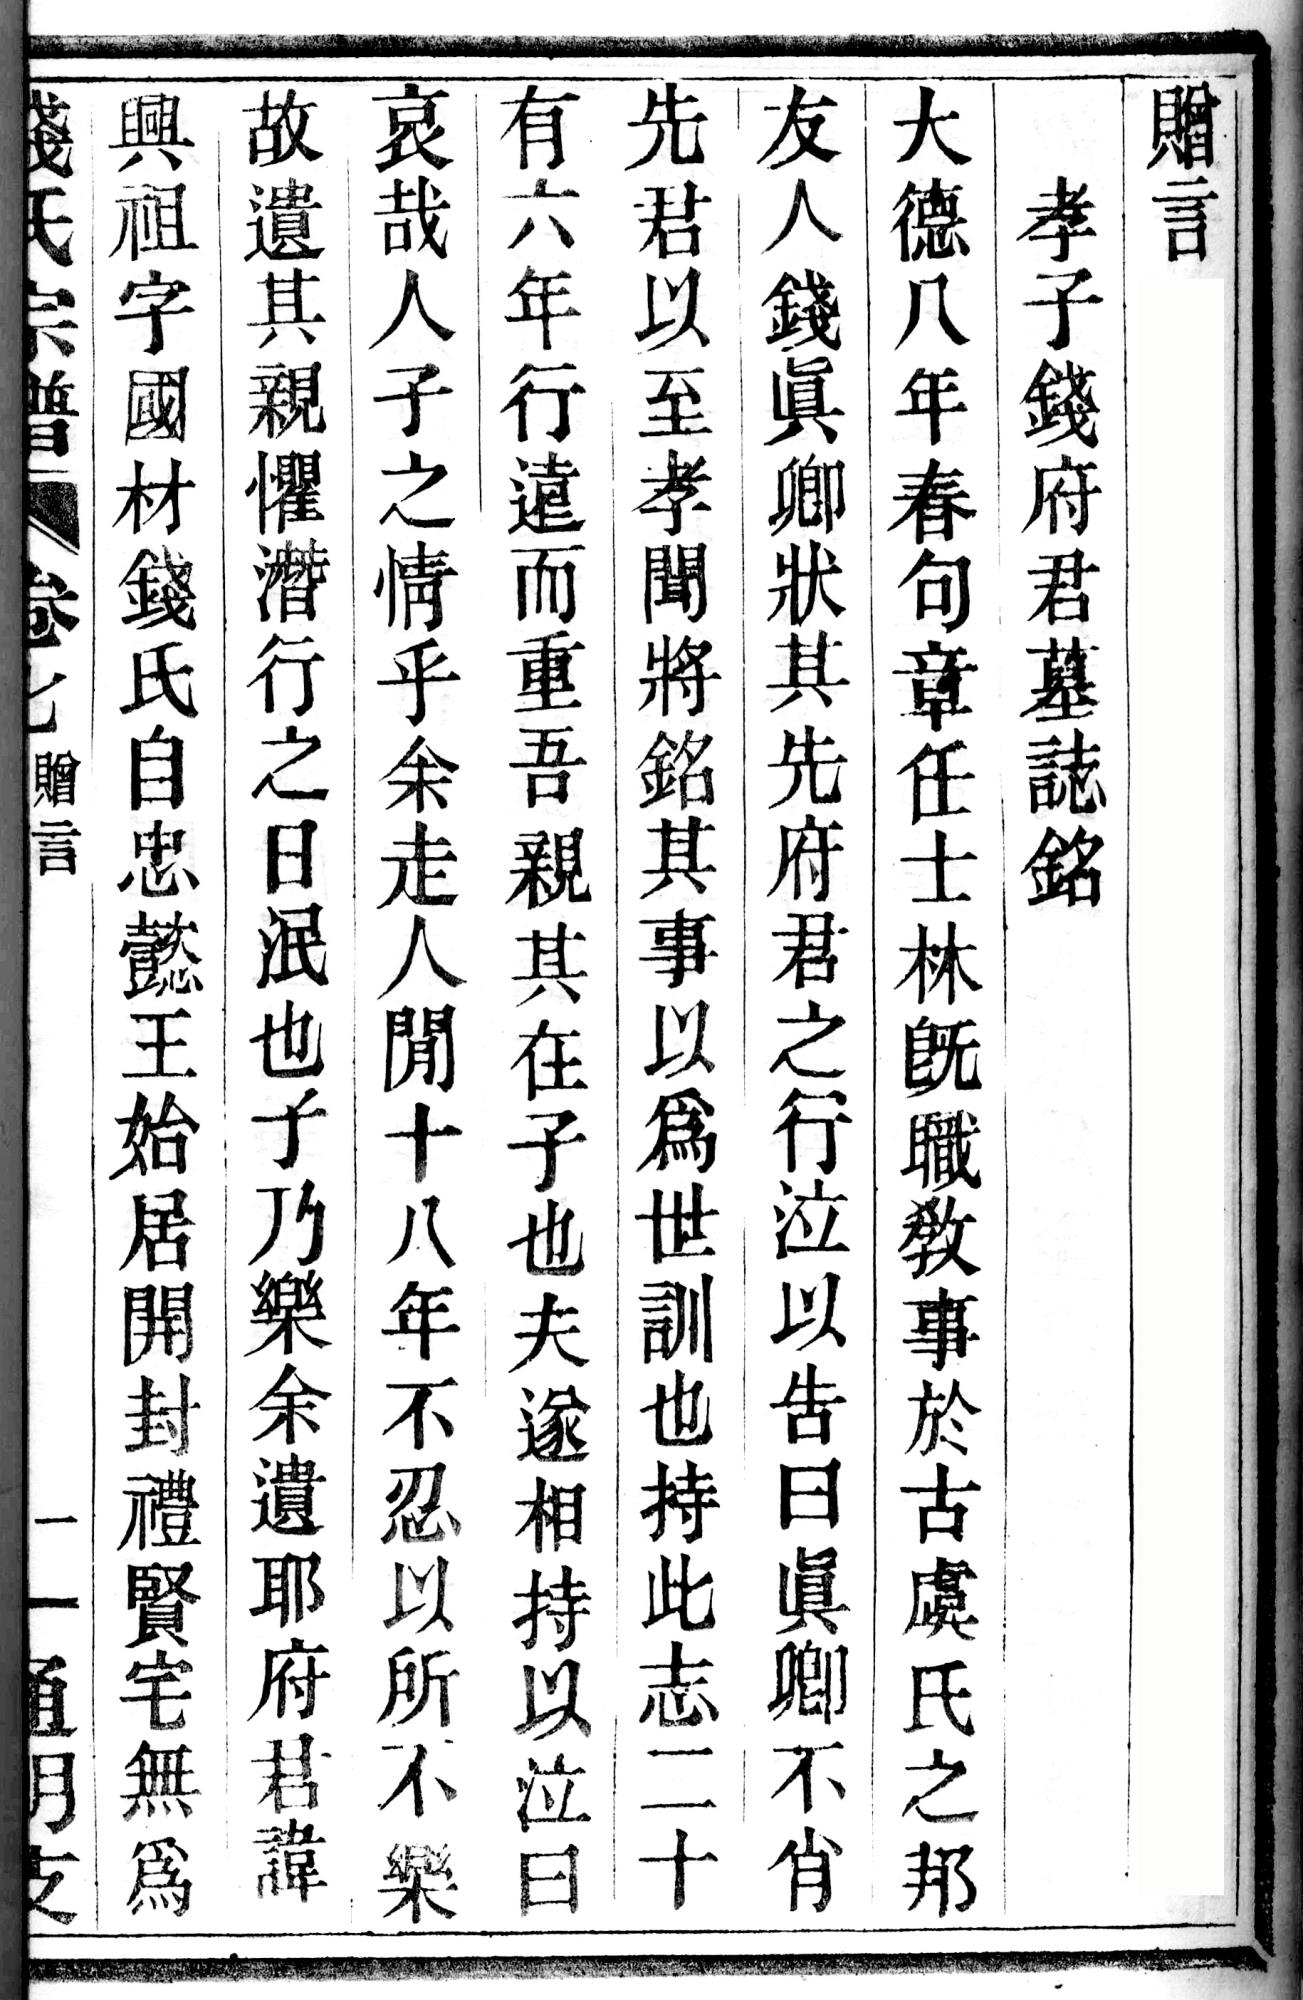 贈言
孝子錢府君墓誌銘
大德八年春句章任士林旣職敎事於古虞氏之邦
友人錢眞卿狀其先府君之行泣以告曰眞卿不肖
先君以至孝聞將銘其事以爲世訓也持此志二十
有六年行遠而重吾親其在子也夫遂相持以泣曰
哀哉人子之情乎余走人閒十八年不忍以所不樂
故遺其親懼潛行之日泯也子乃樂余遺耶府君諱
興祖字國材錢氏自忠懿王始居開封禮賢宅無爲
錢氏宗譜 卷七 贈言 一 一 通明支